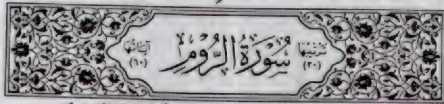 ترتيبها
(٣٠)
سُورَةُ الرُّومِ
آياتها
(٦٠)